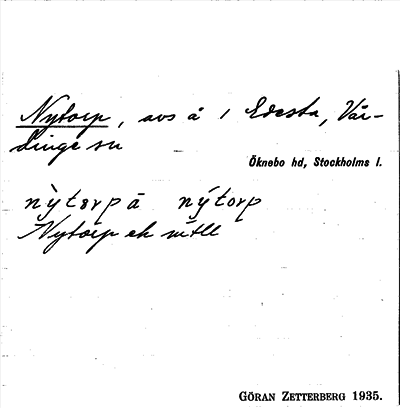 Nytorp, avs å 1 Edesta, Vår-
dinge sn
Öknebo hd, Stockholms l.
nỳtorpa nýtorp
Nytorp ek
GÖRAN ZETTERBERG 1935.